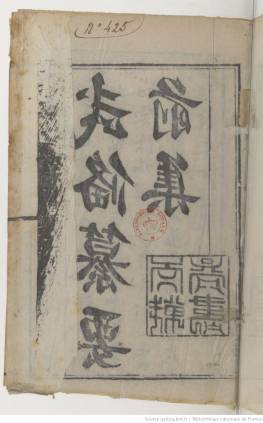 N° 425
武俻纂要
前集
Source gallica.bnf.fr / Bibliothèque nationale de France